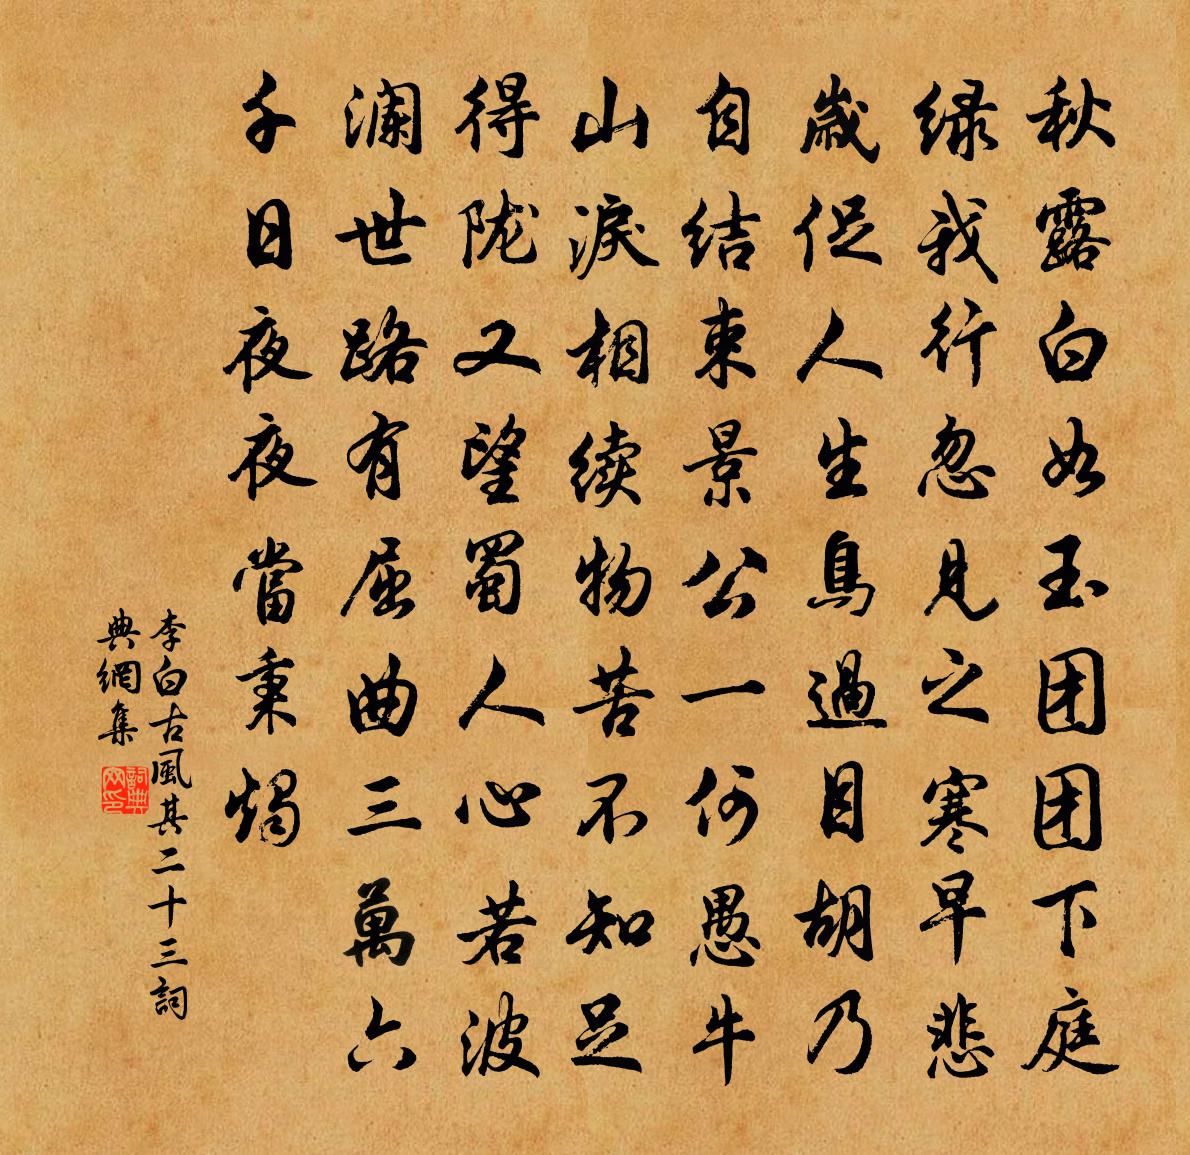 秋露白如玉团团下庭
绿我行忽见之寒早悲
歲促人生鳥過目胡乃
自结束景公一何愚牛
山淚相续物苦不知足
得陇又望蜀人心若波
澜世路有屈曲三萬六
千日夜夜當秉燭
李白古風其二十三詞
典網集
詞典
网印